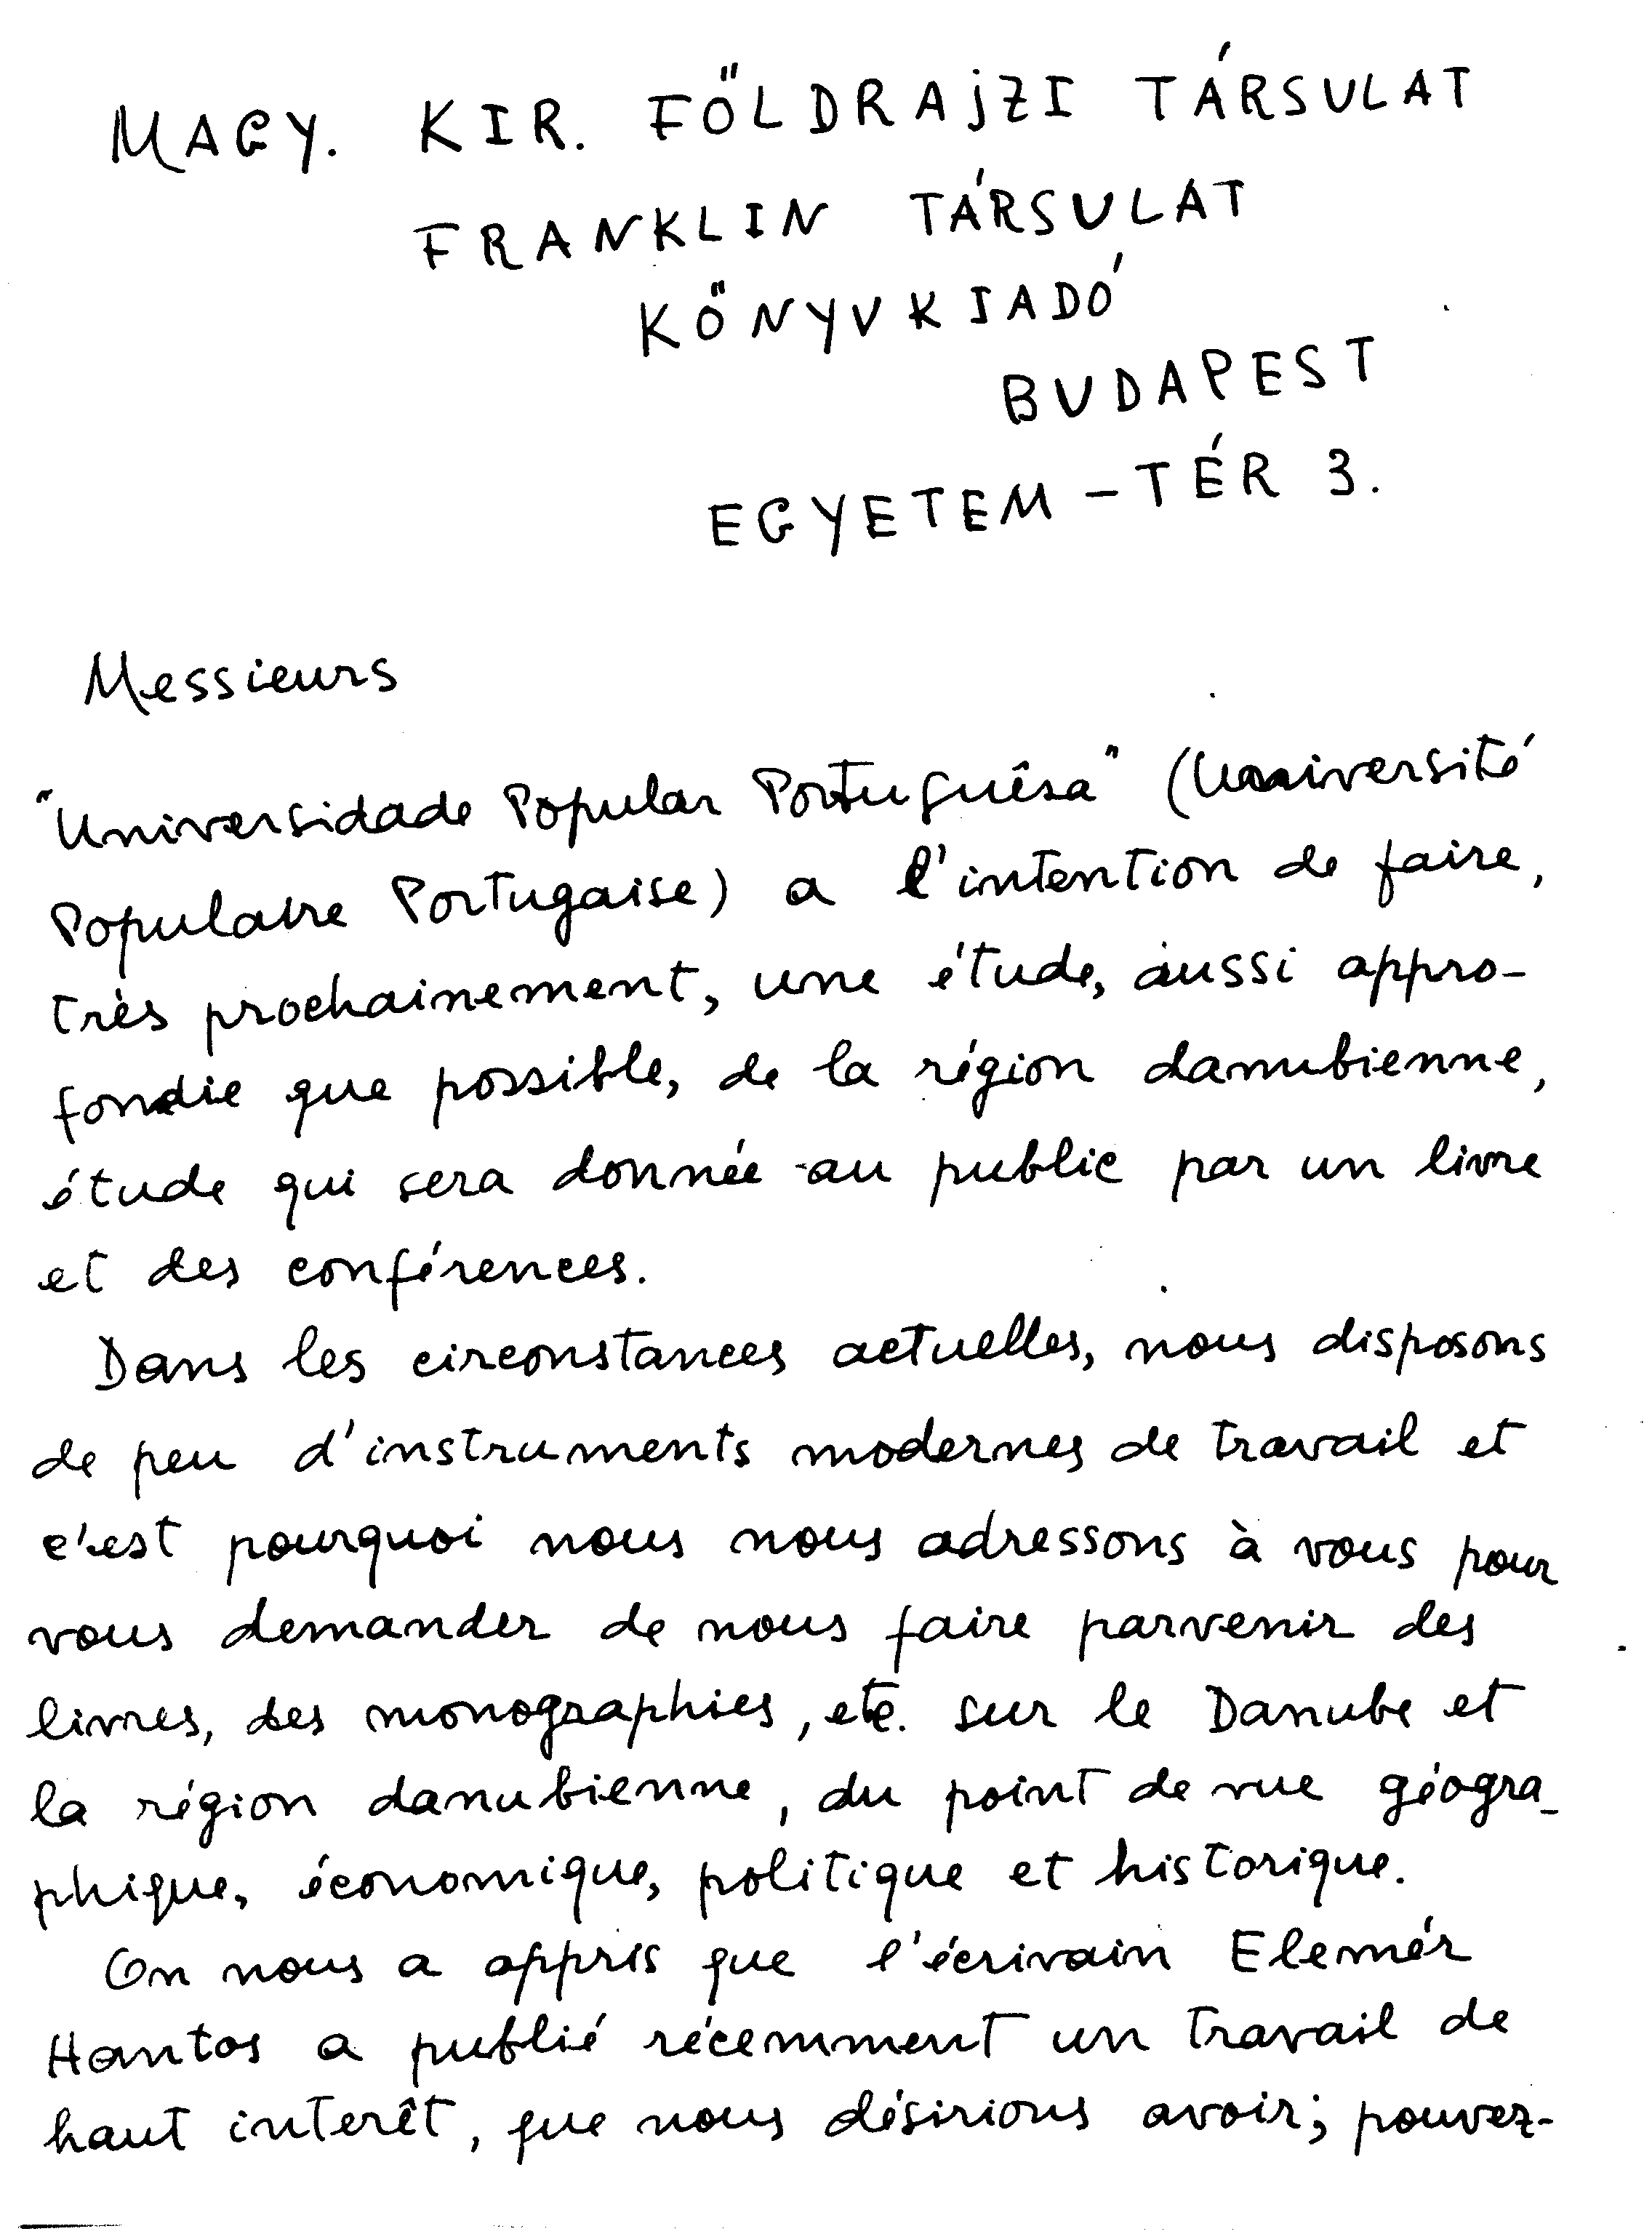 MAGY. KIR. FŐLDRAJZI TÁRSULAT
FRANKLIN TÁRSULAT
KŐNYVKIADÓ
BUDAPEST
EGYETEM-TÉR 3.
Messieurs
"Universidade Popular Portuguêsa" (Université
Populaire Portugaise) a l'intention de faire,
très prochainement, une étude, aussi appro-
fondie que possible, de la région danubienne,
étude qui sera donnée au public par un livre
et des conférences.
Dans les circonstances actuelles, nous disposons
de peu d'instruments modernes de travail et
c'est pourquoi nous nous adressons à vous pour
vous demander de nous faire parvenir des
livres, des monographies, etc. sur le Danube et
la région danubienne, du point de vue géogra-
phique, économique, politique et historique.
On nous a appris que l'écrivain Elemér
Hantos a publié récemment un travail de
haut interêt, que nous désirions avoir; pouvez-